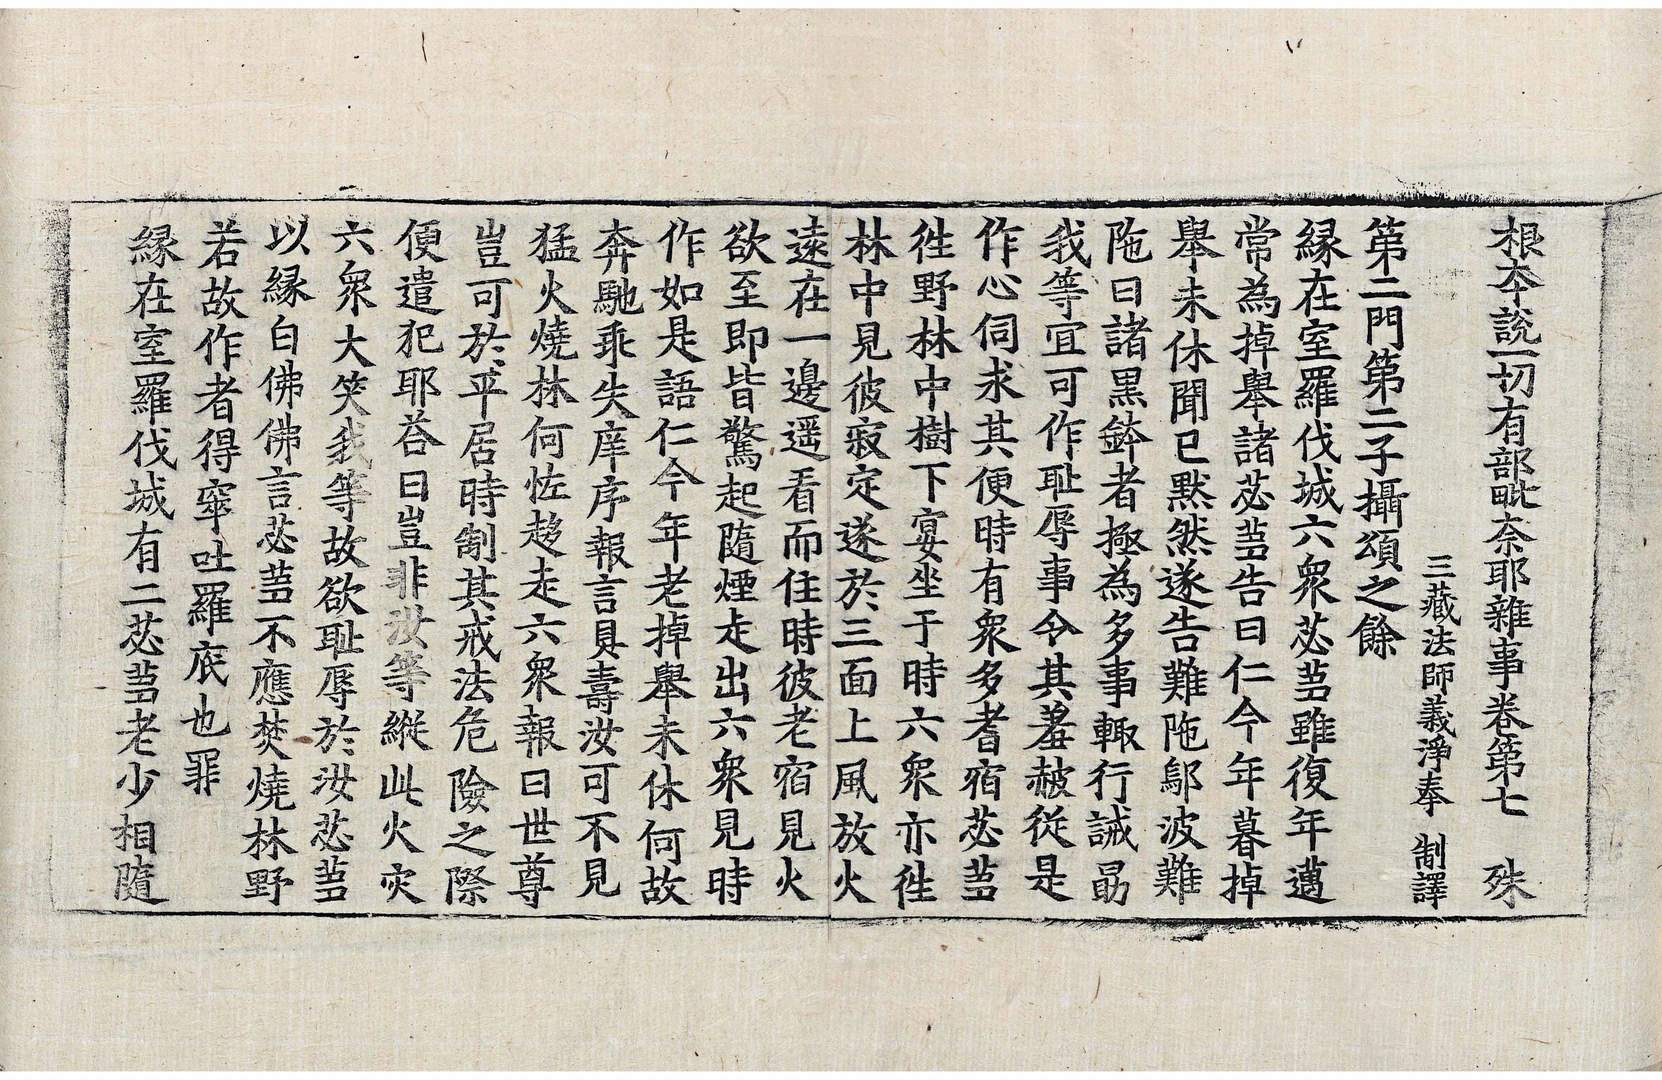 根本說一切有部毗奈耶雜事卷第七　殊
三藏法師義淨奉　制譯
第二門第二子攝頌之餘
緣在室羅伐城六衆苾蒭雖復年邁
常為掉舉諸苾蒭告曰仁今年暮掉
舉未休聞已默然遂告難陁鄔波難
陁曰諸黑鉢者極為多事輙行誡勗
我等宜可作耻辱事令其羞赧從是
作心伺求其便時有衆多耆宿苾蒭
徃野林中樹下宴坐于時六衆亦徃
林中見彼寂定遂於三面上風放火
遠在一邊遥看而住時彼老宿見火
欲至即皆驚起隨煙走出六衆見時
作如是語仁今年老掉舉未休何故
奔馳乖失庠序報言具壽汝可不見
猛火燒林何恠趍走六衆報曰世尊
豈可於平居時制其戒法危險之際
便遣犯耶荅曰豈非汝等縱此火灾
六衆大笑我等故欲耻辱於汝苾蒭
以緣白佛佛言苾蒭不應焚燒林野
若故作者得窣吐羅底也罪
緣在室羅伐城有二苾蒭老少相隨